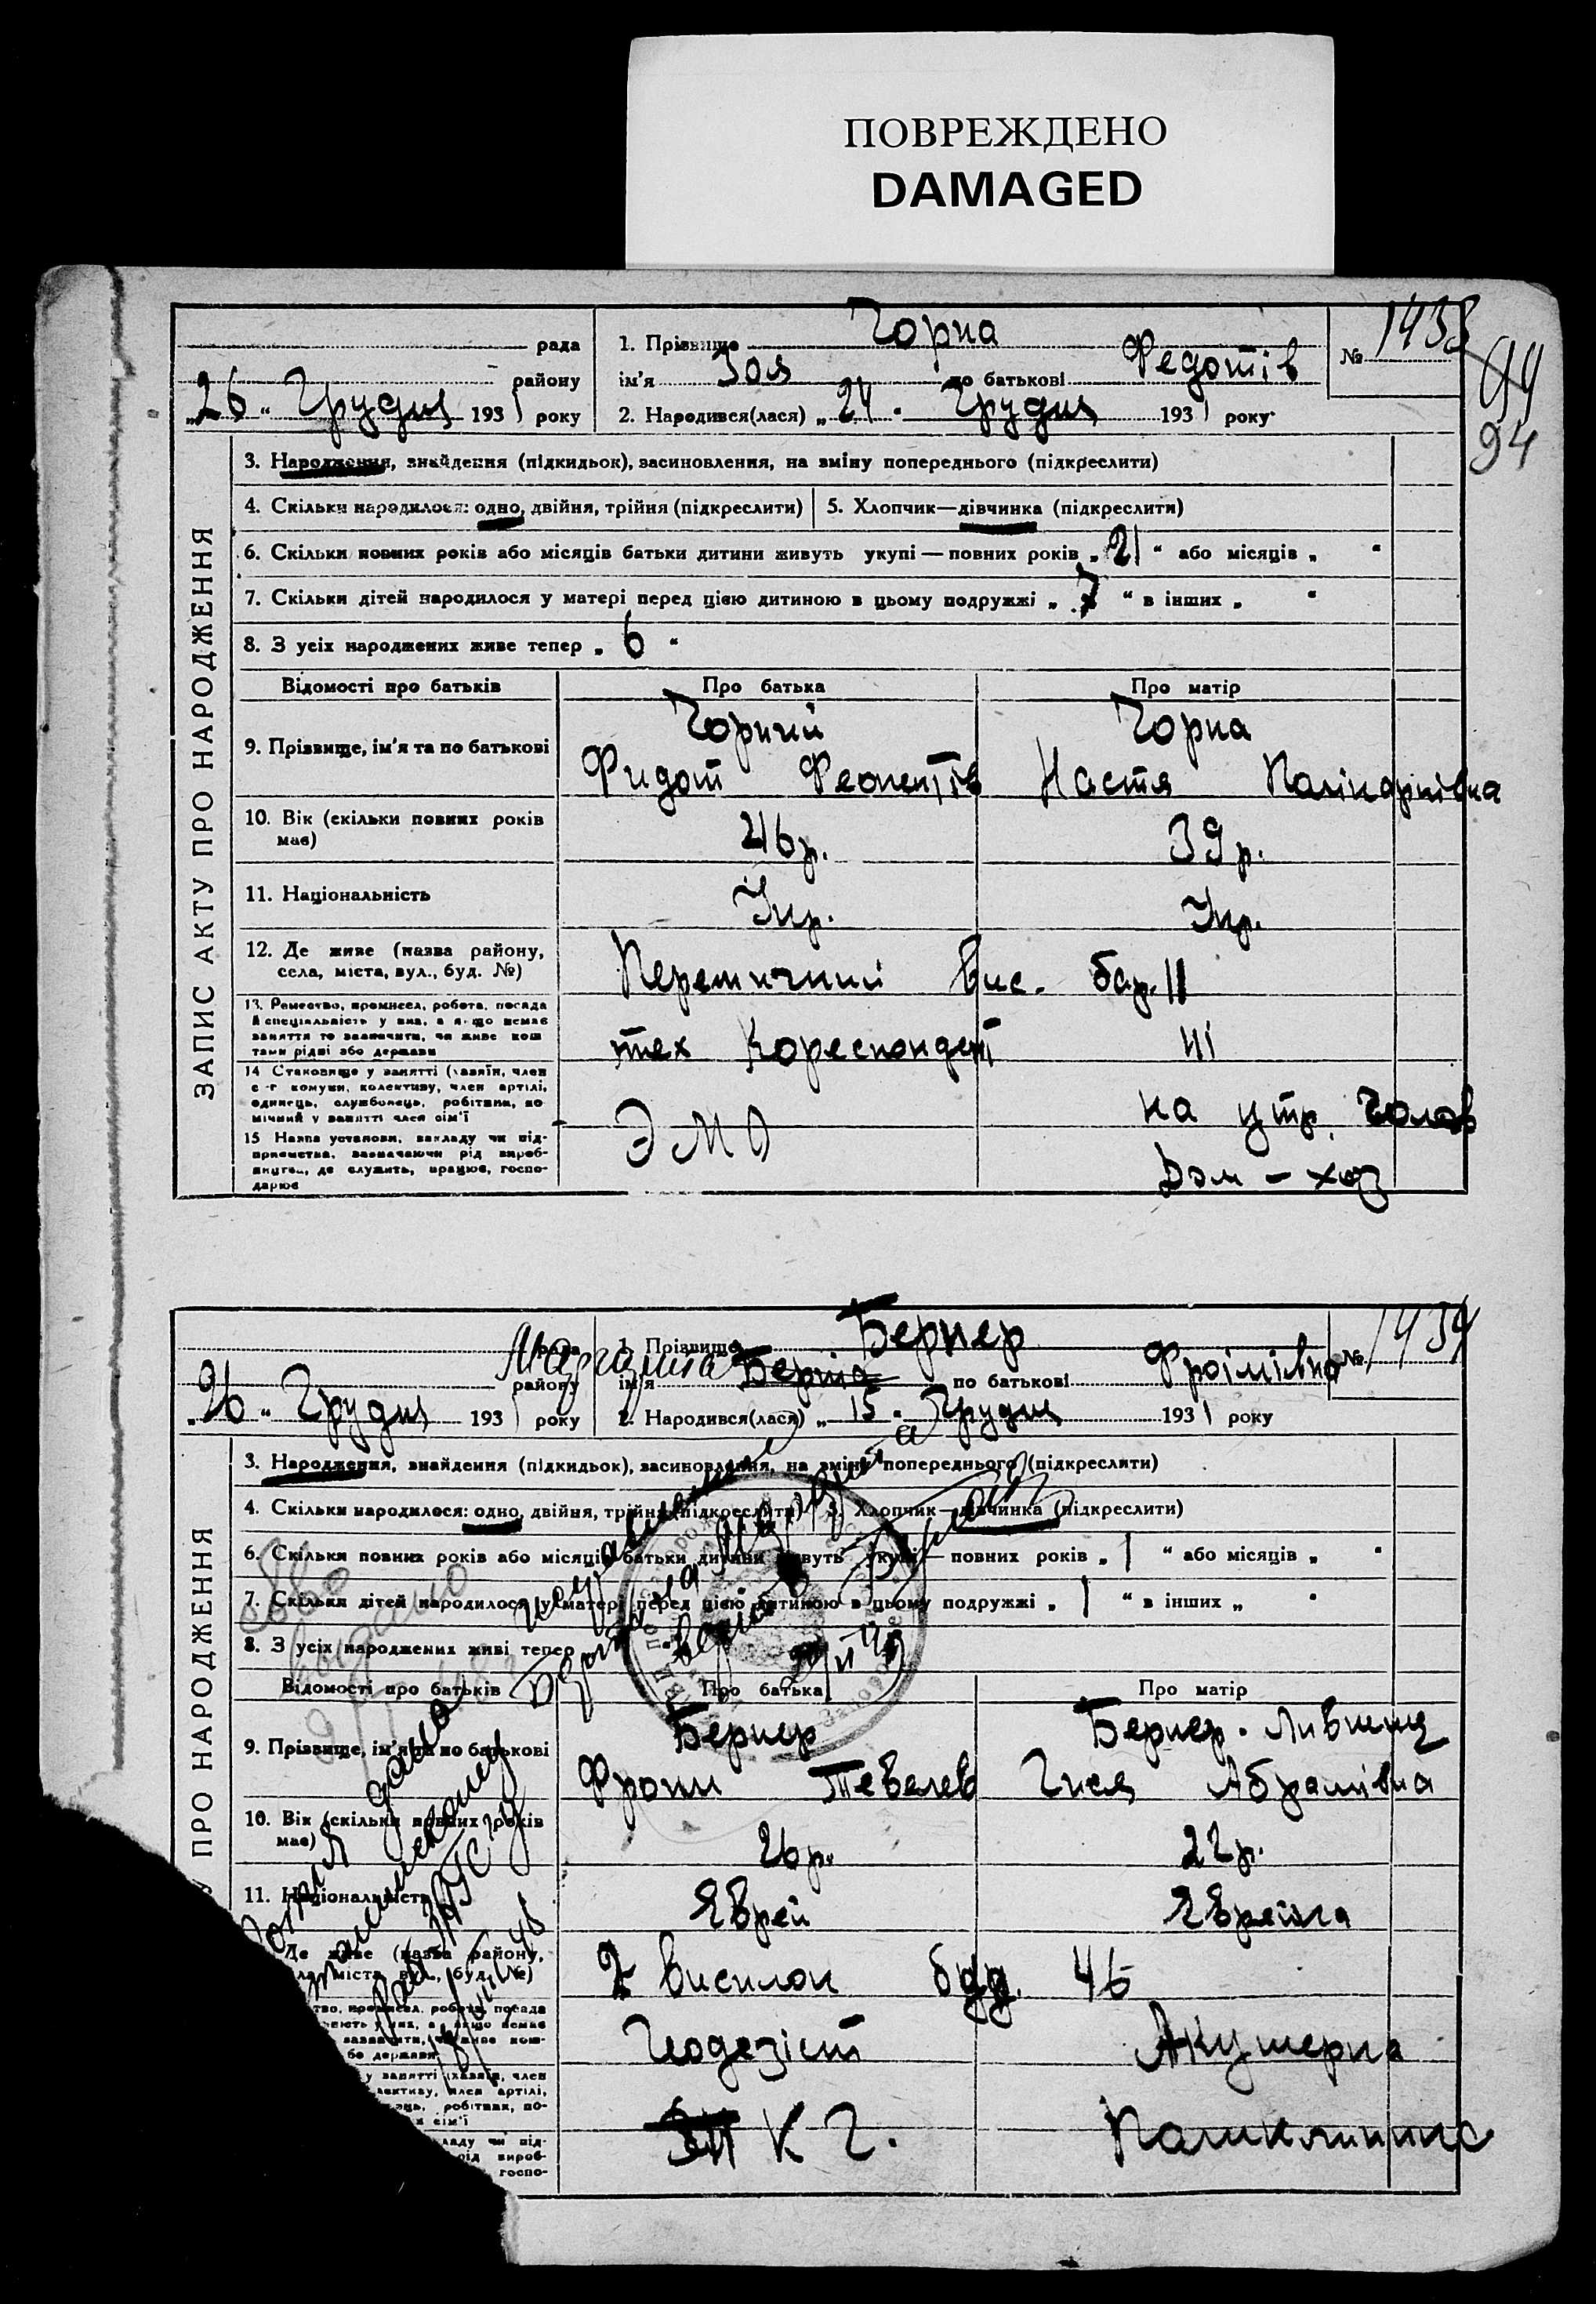 ПОВРЕЖДЕНО
DAMAGED
94
94
ЗАПИС АКТУ ПРО НАРОДЖЕННЯ
рада
району
„26" Грудня 1931 року
1. Прізвище Чорна
ім'я Зоя по батькові Федотів
2. Народився(лася) „24" Грудня 1931 року
№ 1433
3. Народження, знайдення (підкидьок), засиновлення, на зміну попереднього (підкреслити)
4. Скільки народилося: одно, двійня, трійня (підкреслити) 5. Хлопчик—дівчинка (підкреслити)
6. Скільки повних років або місяців батьки дитини живуть укупі — повних років „21" або місяців „ "
7. Скільки дітей народилося у матері перед цією дитиною в цьому подружжі „7" в інших „ "
8. З усіх народжених живе тепер „6"
Відомості про батьків Про батька Про матір
9. Прізвище, ім'я та по батькові
Чорний Чорна
Фидот Настя Полікарпівна
10. Вік (скільки повних років має) 46р. 39р.
11. Національність Укр. Укр.
12. Де живе (назва району, села, міста, вул., буд. №)
вис. бар. 11
13. Ремество, промисел, робота, посада й спеціальність у яна, а якщо немає заняття то зазначити, чи живе коштами рідні або держави
тех Кореспондент ні
14 Становище у занятті (хазяїн, член с-г комуни, колективу, член артілі, одинець, службовець, робітник, помічний у занятті член сім'ї
на утр. Чолов
15 Назва установи, закладу чи підприємства, зазначаючи рід виробництва, де служить, працює, господарює
Дом - хоз
ПРО НАРОДЖЕННЯ
рада
району
„26" Грудня 1931 року
1. Прізвище Бернер
Маргарита
ім'я Берта по батькові Фроімівна
2. Народився(лася) „15" Грудня 1931 року
№ 1434
3. Народження, знайдення (підкидьок), засиновлення, на зміну попереднього (підкреслити)
4. Скільки народилося: одно, двійня, трійня (підкреслити) 5. Хлопчик—дівчинка (підкреслити)
6. Скільки повних років або місяців батьки дитини живуть укупі — повних років „1" або місяців „ "
7. Скільки дітей народилося у матері перед цією дитиною в цьому подружжі „1" в інших „ "
8. З усіх народжених живі тепер
Відомості про батьків Про батька Про матір
9. Прізвище, ім'я та по батькові
Бернер Бернер
Фроим Тевелев Гися Абрамівна
10. Вік (скільки повних років має) 26р. 22р.
11. Національність Єврей Єврейка
Де живе (назва району, міста, вул., буд. №)
2 висилок буд. 46
Геодезіст Акушерка
К Г. Поликлиника